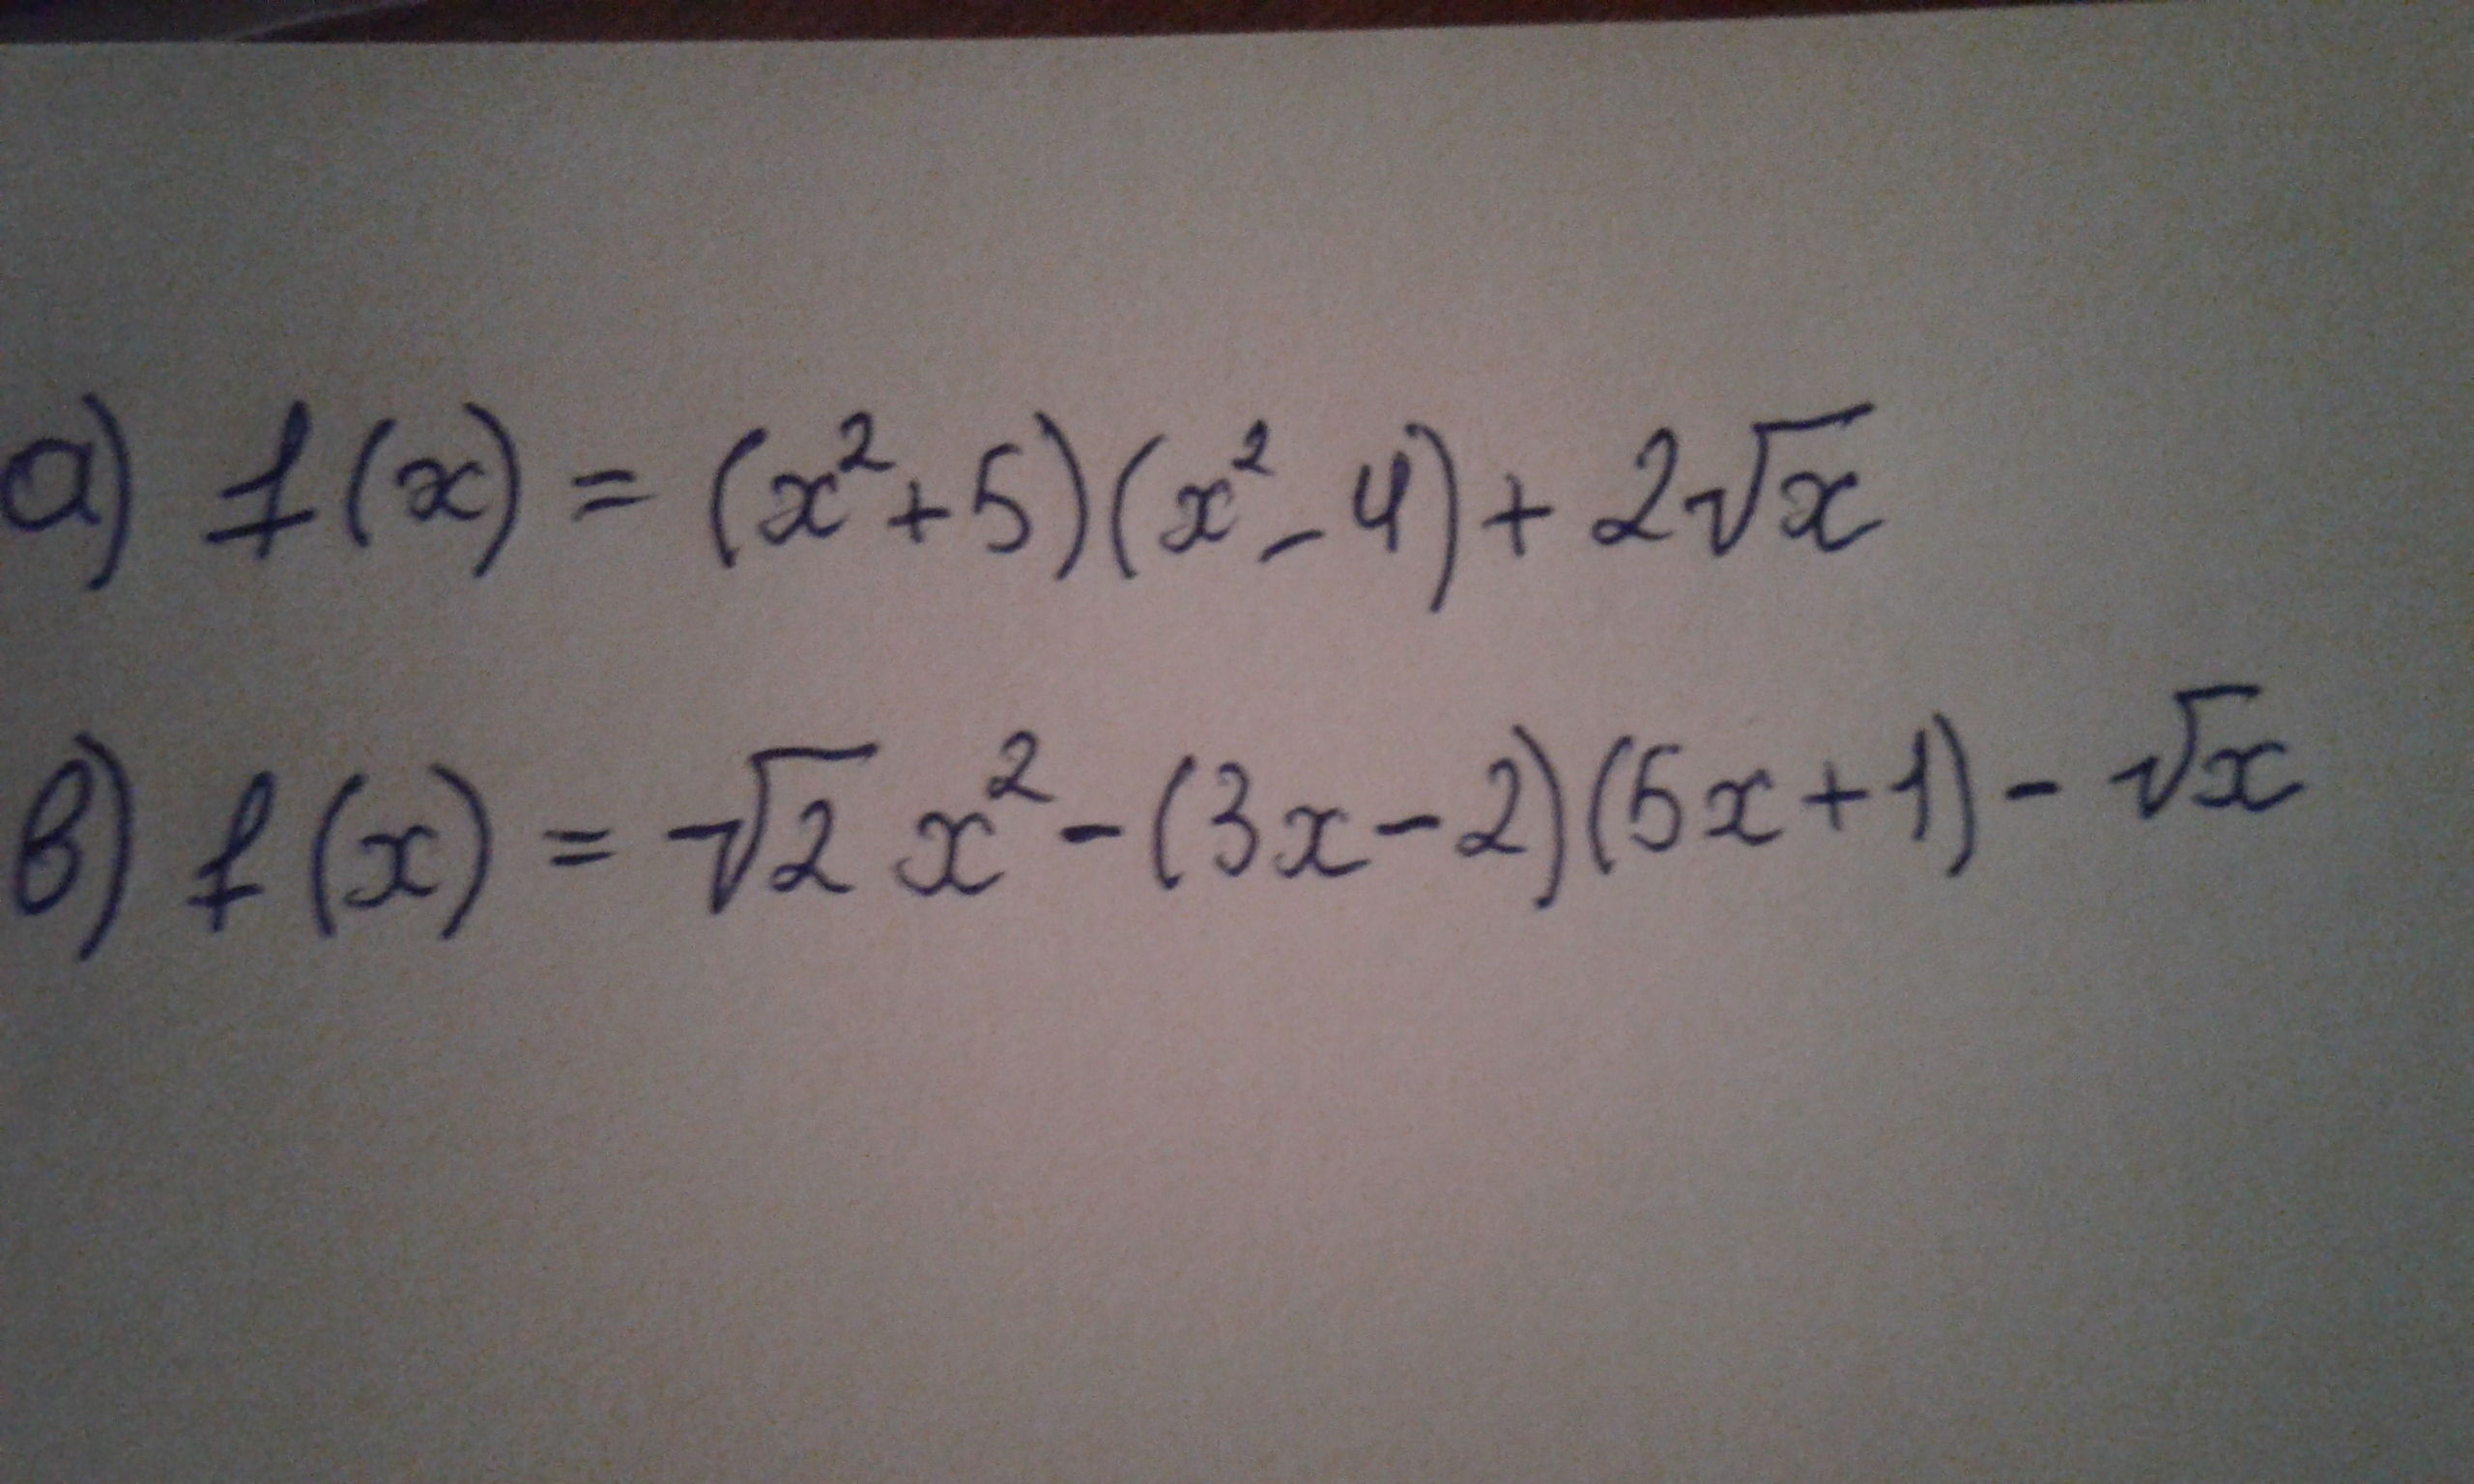 а) f(x) = (x²+5)(x²-4)+2√x
в) f(x) = √2 x²-(3x-2)(5x+1)-√x